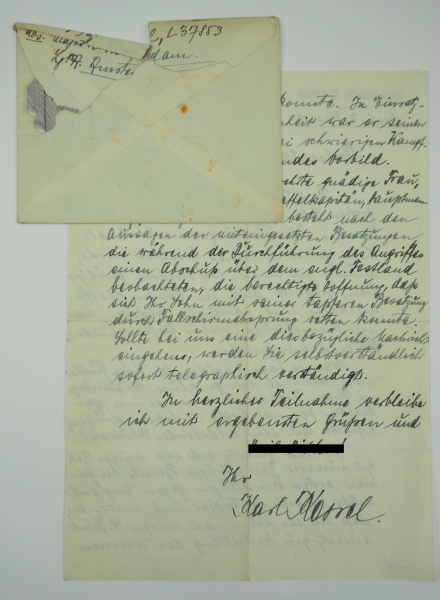 L 37853
konnte. In Einsatz-
heit war er seinen
bei schwierigen Kampf-
endes Vorbild.
ehrte gnädige Frau,
ffelkapitän, Hauptmann
besteht nach den
Aussagen der miteingesetzten Besatzungen
die während der Durchführung des Angriffes
einen Abschuß über dem engl. Festland
beobachteten, die berechtigte Hoffnung, daß
sich Ihr Sohn mit seiner tapferen Besatzung
durch Fallschirmabsprung retten konnte.
Sollte bei uns eine diesbezügliche Nachricht
eingehen, werden Sie selbstverständlich
sofort telegraphisch verständigt.
In herzlicher Teilnahme verbleibe
ich mit ergebensten Grüßen und
Ihr
Karl